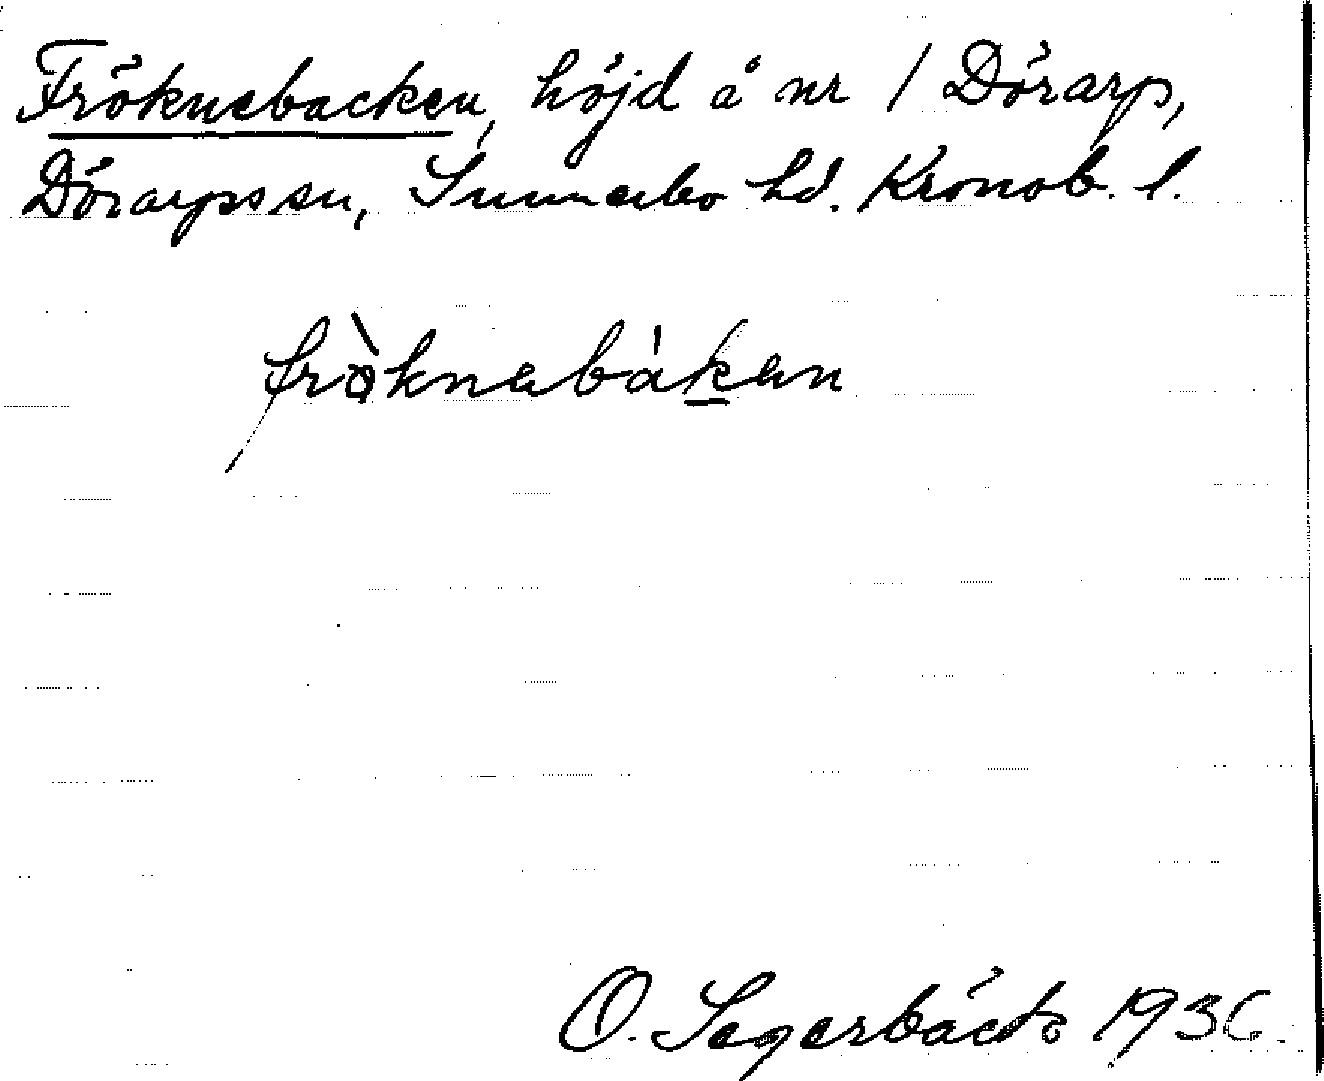 Fröknebacken, höjd å nr 1 Dörarp,
Dörarps sn, Sunnerbo hd. Kronob. l.
fròknabákan
O. Segerbäck 1936.